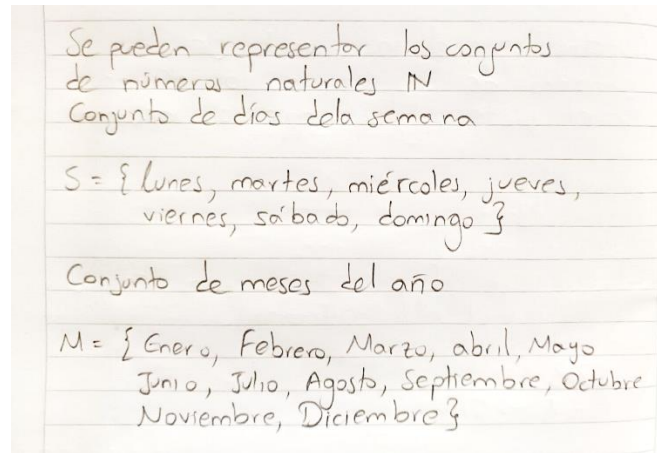 Se pueden representar los conjuntos
de números naturales IN
Conjunto de días dela semana
S = { lunes, martes, miércoles, jueves,
viernes, sábado, domingo }
Conjunto de meses del año
M = { Enero, Febrero, Marzo, abril, Mayo
Junio, Julio, Agosto, Septiembre, Octubre
Noviembre, Diciembre }